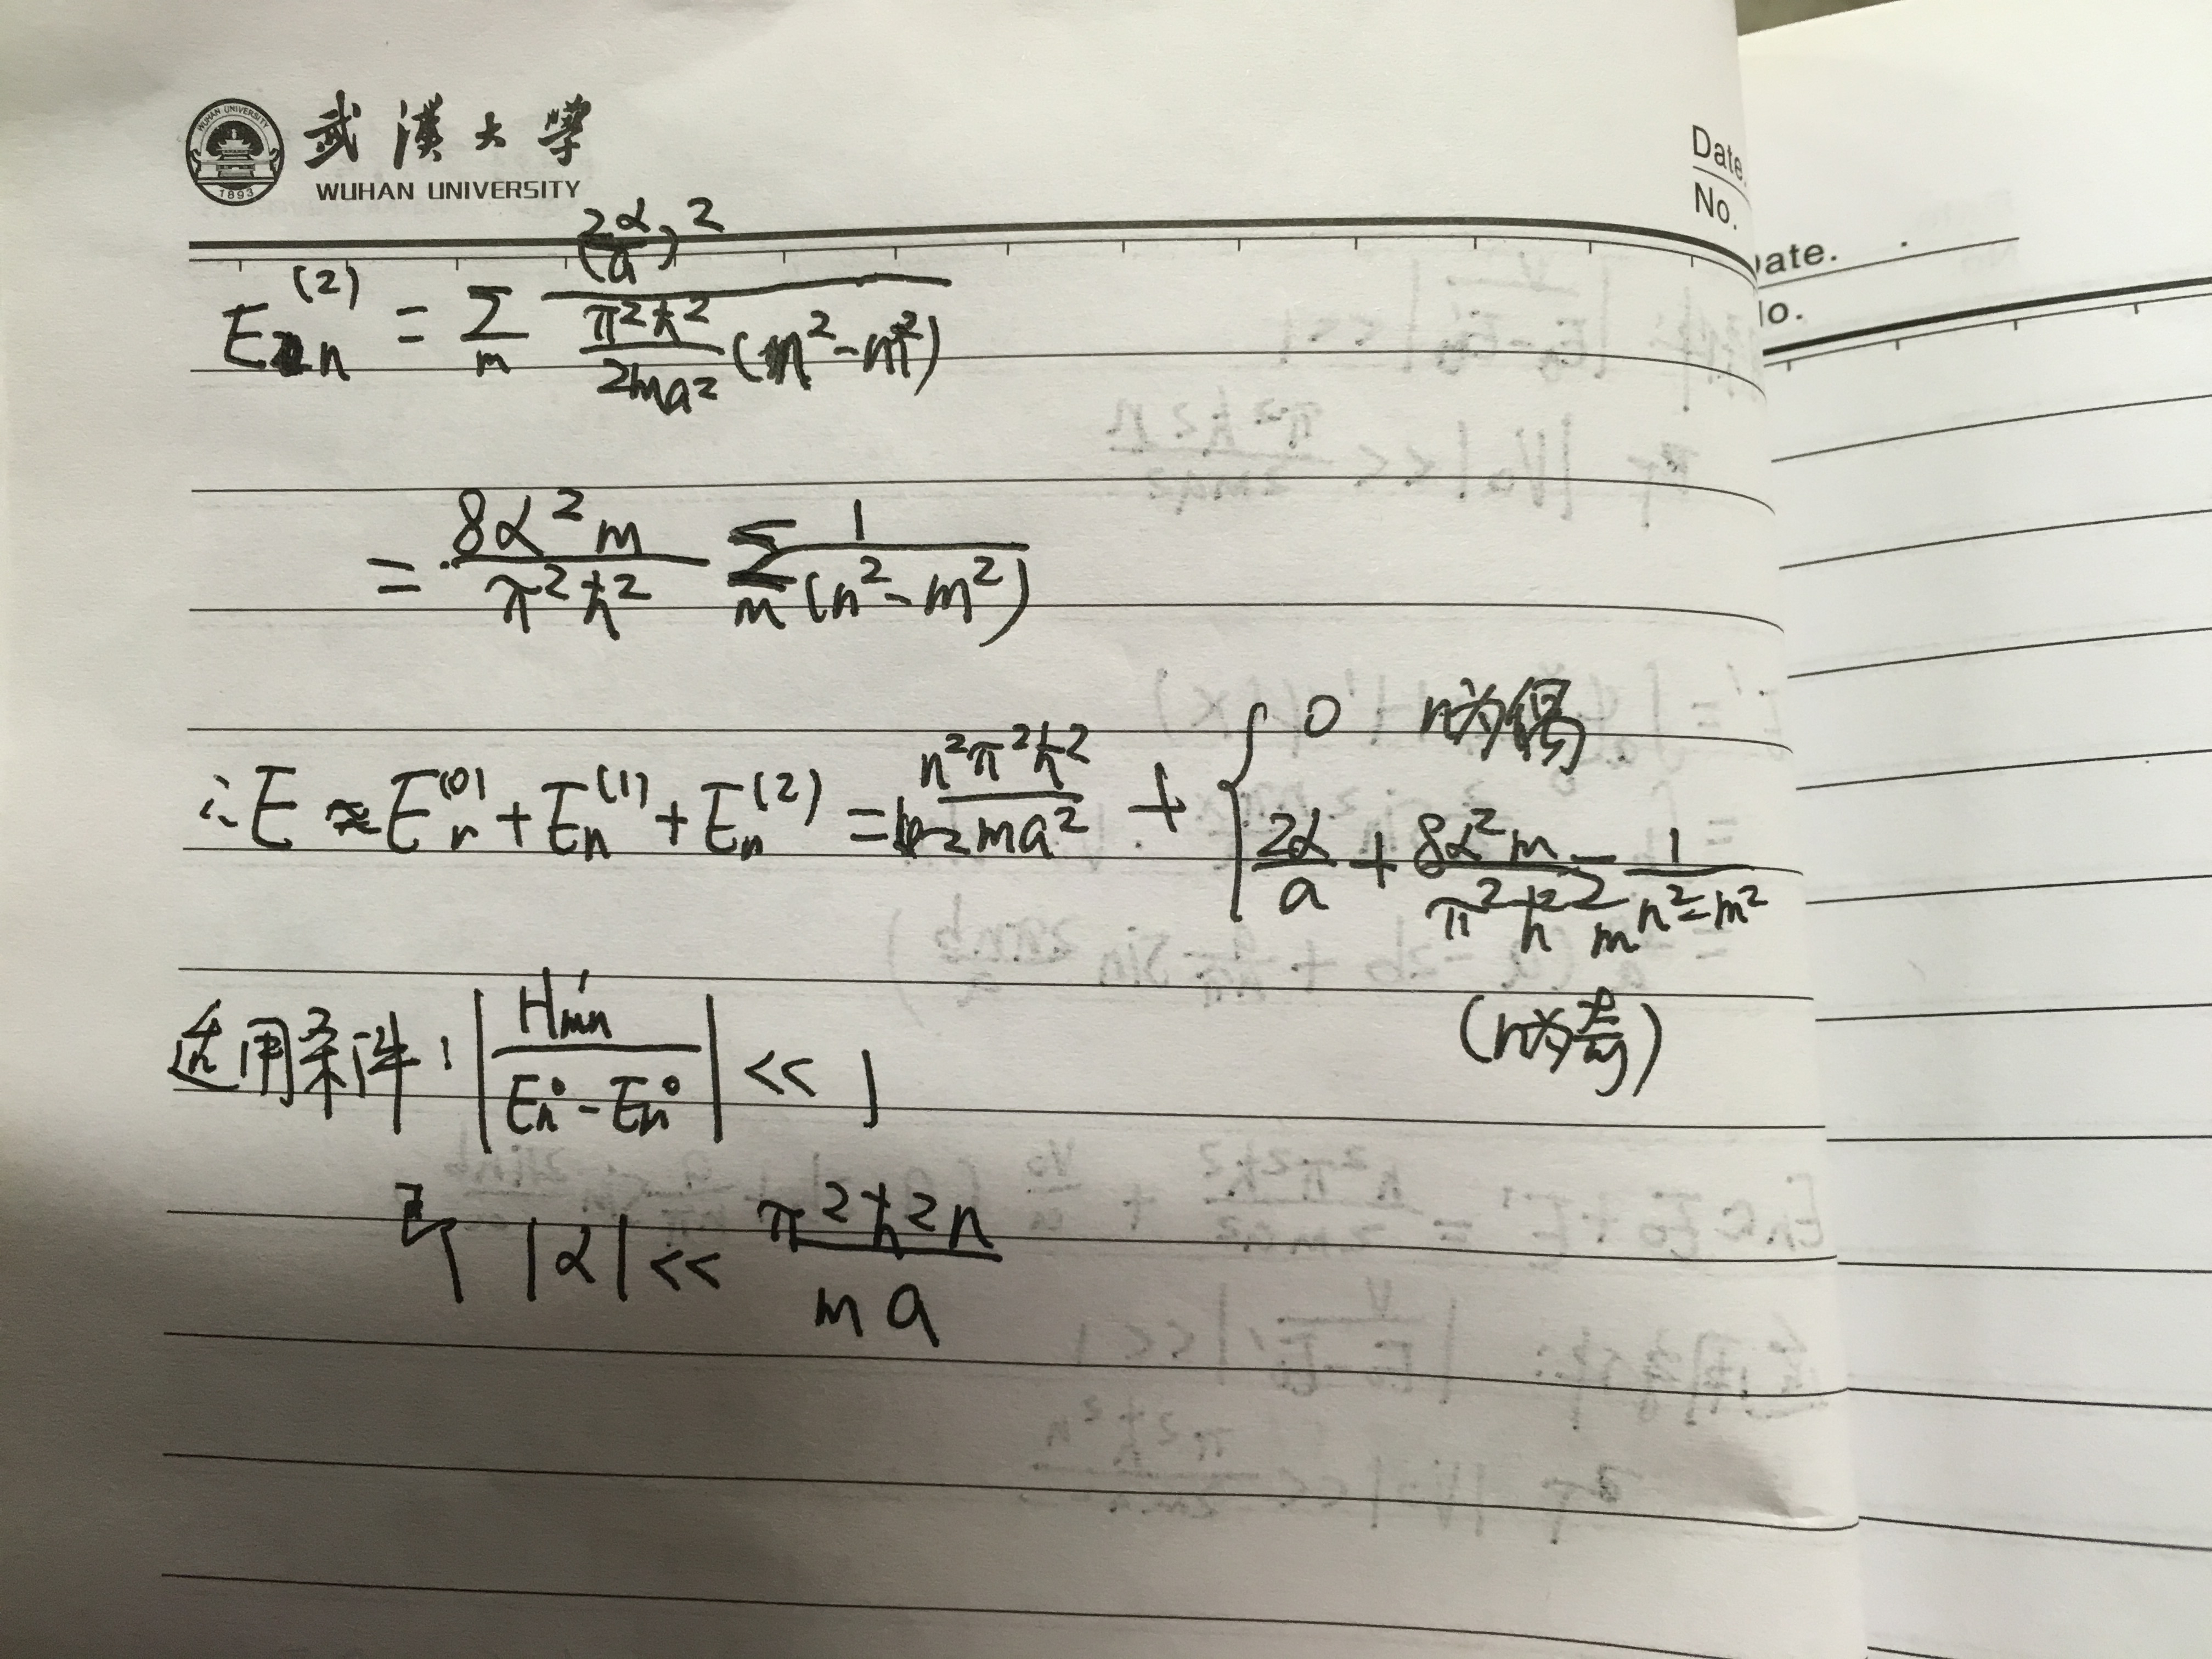 武漢大學
WUHAN UNIVERSITY
WUHAN UNIVERSITY 1893
Date.
No.
Date.
No.
E_n^{(2)} = Σ_m (2α/a)^2 / [π^2ħ^2/2ma^2 (n^2-m^2)]
= 8α^2m/π^2ħ^2 Σ_m 1/(n^2-m^2)
∴E ≈ E_n^{(0)} + E_n^{(1)} + E_n^{(2)} = n^2π^2ħ^2/2ma^2 + { 0 n为偶
2α/a + 8α^2m/π^2ħ^2 Σ_m 1/n^2-m^2
(n为奇)
适用条件: |H'_{mn}/E_n^0-E_m^0| << 1
即 |α| << π^2ħ^2n/ma